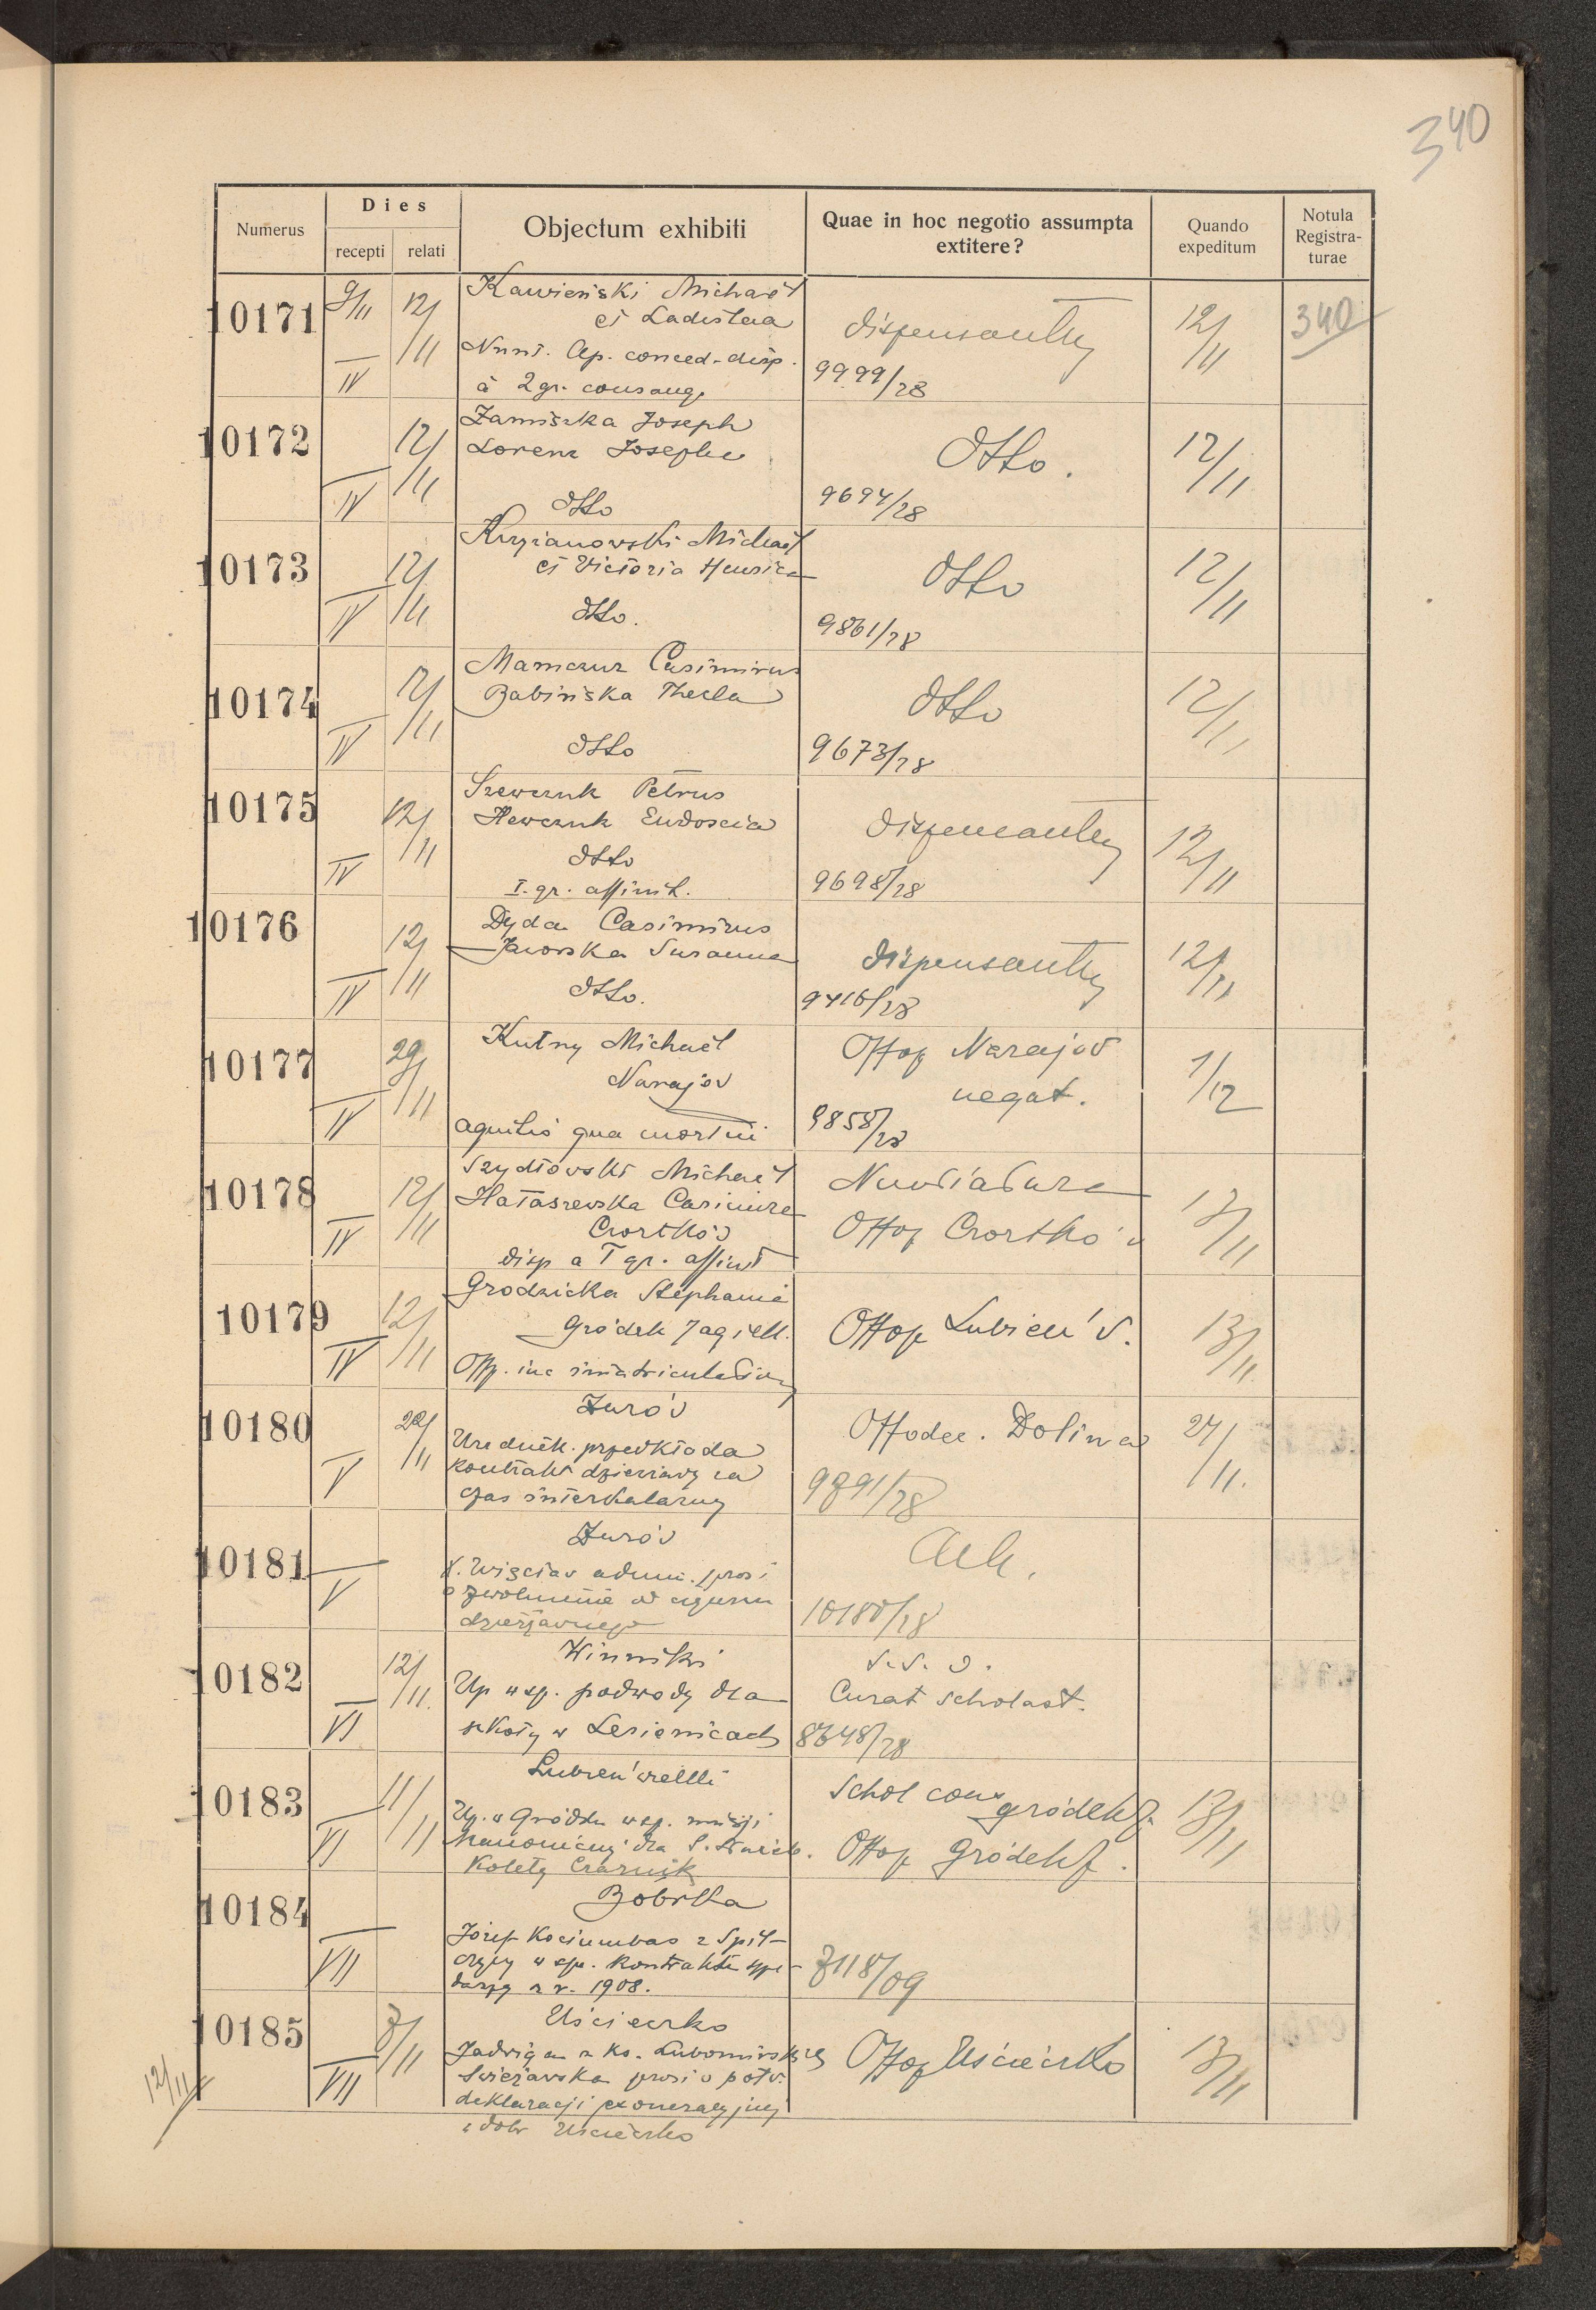 340
Numerus
Dies
recepti
relati
Objectum exhibiti
Quae in hoc negotio assumpta
extitere?
Quando
expeditum
Notula
Registra-
turae
10171
9/11
IV
12/11
Kawieński Michaël
et Ladislaa
Nunt. Ap. conced. disp.
à 2 gr. consang.
dispensantur
9999/28
12/11
340
10172
IV
12/11
Zamiszka Joseph
Lorenz Josepha
dtto
dtto.
9694/28
12/11
10173
IV
12/11
Krzyżanowski Michaël
et Victoria Henrica
dtto.
dtto
9861/28
12/11
10174
IV
12/11
Mamczur Casimirus
Babińska Thecla
dtto
dtto
9673/28
12/11
10175
IV
12/11
Szewczuk Petrus
Hewczuk Eudoscia
dtto
I. gr. affinit.
dispensantur
9698/28
12/11
10176
IV
12/11
Dyda Casimirus
Jaworska Susanna
dtto.
dispensantur
9416/28
12/11
10177
IV
29/11
Kutny Michaël
Narajów
agnitio qua mortui
Offop Narajów
negat.
9858/28
1/12
10178
IV
12/11
Szydłowski Michaël
Hałaszewska Casimira
Czortków
disp a I gr. affinit
Nuntiatura
Offop Czortków
13/11
10179
IV
12/11
Grodzicka Stephania
Gródek Jagiell.
Offp. inc immatriculationy
Offop Lubień v.
13/11
10180
V
20/11
Żurów
Urz dziek. przedkłada
kontrakt dzierżawy za
czas interkalarny
Offodec. Dolina
9891/28
24/11.
10181
V
Żurów
X. Więcław admin. prosi
o zwolnienie od czynszu
dzierżawnego
Ack.
10180/28
10182
VI
12/11.
Winniki
Up w sp. podwody dla
szkoły w Lesienicach
V. V. D.
Curat scholast.
8348/28
10183
VI
11/11
Lubień wielki
Up. w Gródku w sp. misji
kanonicznej dla S.
Kolety Czarnik
Schol cons gródek J.
Offop Gródek J.
13/11
10184
VII
Bóbrka
Józef Kociumbas z Spil-
czyny w spr. kontraktu sprze-
daży z r. 1908.
3118/09
10185
12/11
VII
3/11
Uścieczko
Jadwiga z ks. Lubomirskich
Świeżawska prosi o potw.
deklaracji exoneracyjnej
z dóbr Uścieczko
Offop Uścieczko
13/11